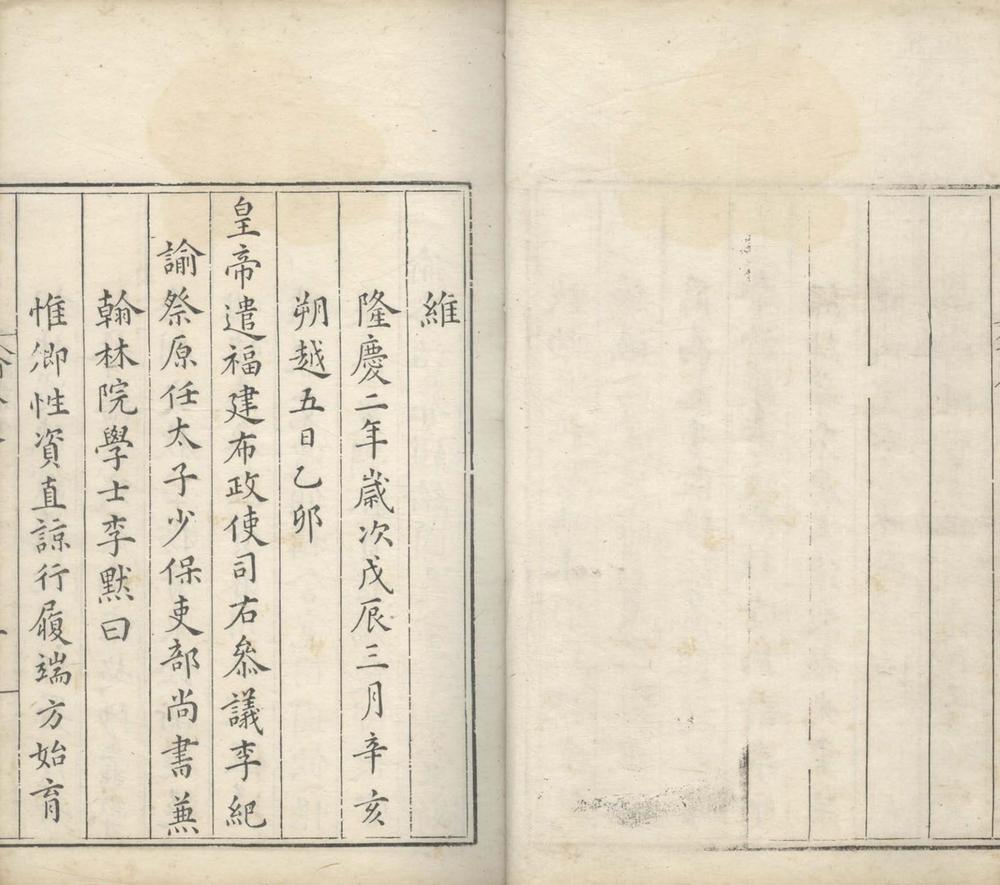 維
隆慶二年歲次戊辰三月辛亥
朔越五日乙卯
皇帝遣福建布政使司右叅議李紀
諭祭原任太子少保吏部尚書兼
翰林院學士李默曰
惟卿性資直諒行履端方始育